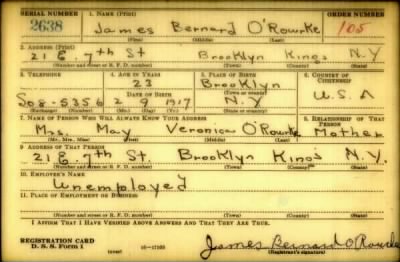 SERIAL NUMBER 1. NAME (Print) ORDER NUMBER
2638 James Bernard O'Rourke 105
(First) (Middle) (Last)
2. ADDRESS (Print)
21 E. 7th St Brooklyn Kings N.Y
(Number and street or R. F. D. number) (Town) (County) (State)
3. TELEPHONE 4. AGE IN YEARS 5. PLACE OF BIRTH 6. COUNTRY OF CITIZENSHIP
23 Brooklyn
DATE OF BIRTH
So8-5356 2 9 1917 N.Y U.S.A
(Exchange) (Number) (Mo.) (Day) (Yr.) (State or country)
7. NAME OF PERSON WHO WILL ALWAYS KNOW YOUR ADDRESS 8. RELATIONSHIP OF THAT PERSON
Mrs. May Veronica O'Rourke Mother
(Mr., Mrs., Miss) (First) (Middle) (Last)
9. ADDRESS OF THAT PERSON
21 E 7th St. Brooklyn Kings N.Y.
(Number and street or R. F. D. number) (Town) (County) (State)
10. EMPLOYER'S NAME
Unemployed
11. PLACE OF EMPLOYMENT OR BUSINESS
(Number and street or R. F. D. number) (Town) (County) (State)
I AFFIRM THAT I HAVE VERIFIED ABOVE ANSWERS AND THAT THEY ARE TRUE.
REGISTRATION CARD
D. S. S. Form 1 (over) 16-17105 James Bernard O'Rourke
(Registrant's signature)